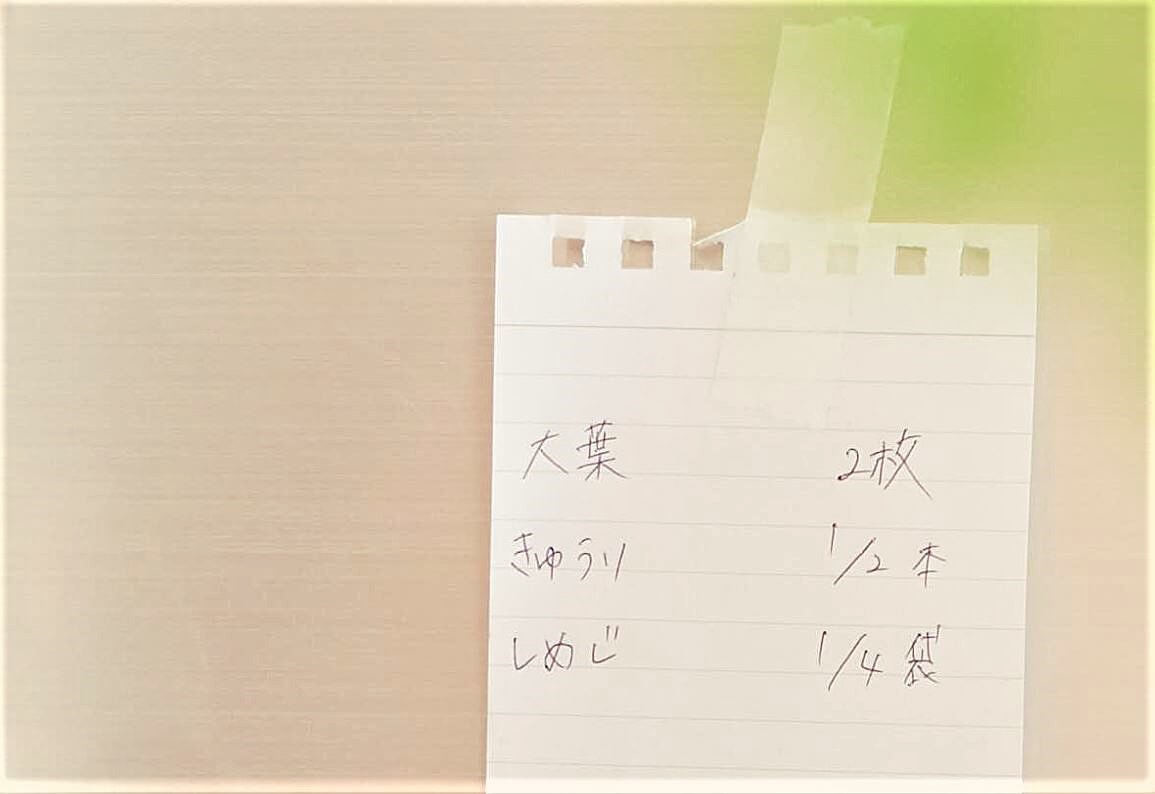 大葉 2枚
きゅうり 1/2本
しめじ 1/4袋